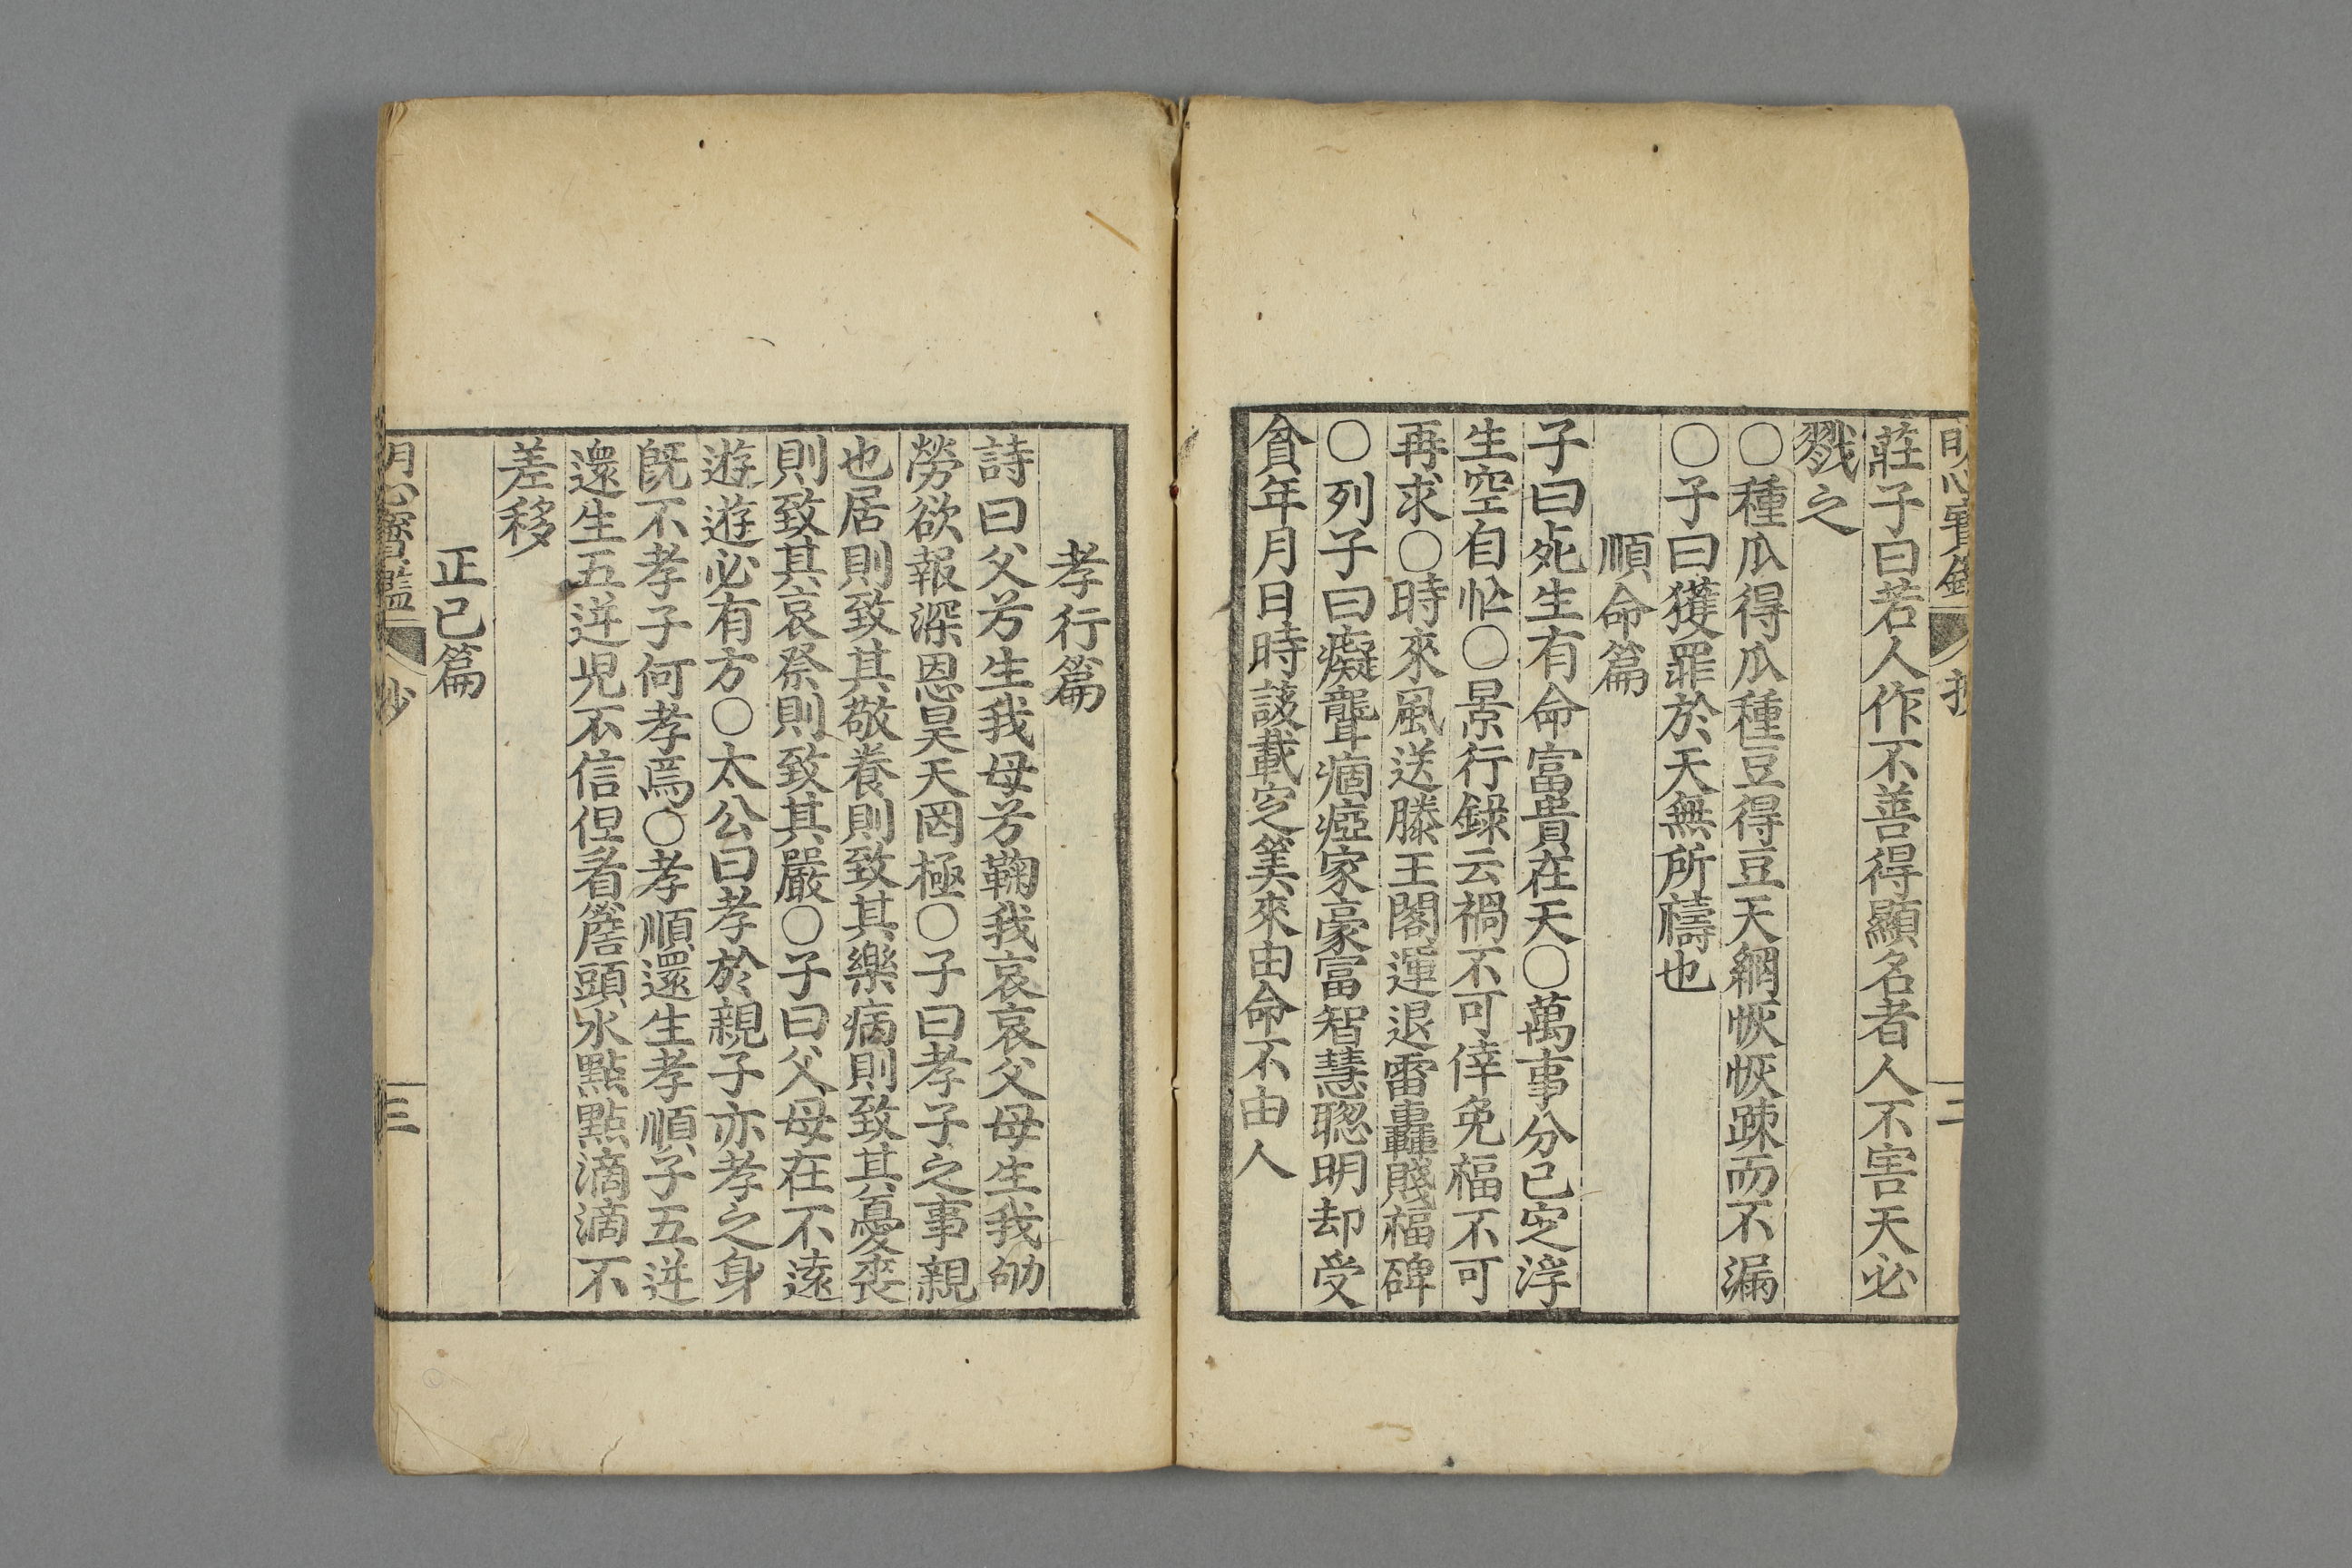 莊子曰若人作不善得顯名者人不害天必
戮之
○種瓜得瓜種豆得豆天網恢恢踈而不漏
○子曰獲罪於天無所禱也
順命篇
子曰死生有命富貴在天○萬事分已定浮
生空自忙○景行錄云禍不可倖免福不可
再求○時來風送滕王閣運退雷轟賤福碑
○列子曰癡聾痼瘂家豪富智慧聦明却受
貧年月日時該載定筭來由命不由人
孝行篇
詩曰父兮生我母兮鞠我哀哀父母生我劬
勞欲報深恩昊天罔極○子曰孝子之事親
也居則致其敬養則致其樂病則致其憂喪
則致其哀祭則致其嚴○子曰父母在不遠
遊遊必有方○太公曰孝於親子亦孝之身
旣不孝子何孝焉○孝順還生孝順子五逆
還生五逆児不信但看簷頭水點點滴滴不
差移
正己篇
明心寶鑑 抄 三